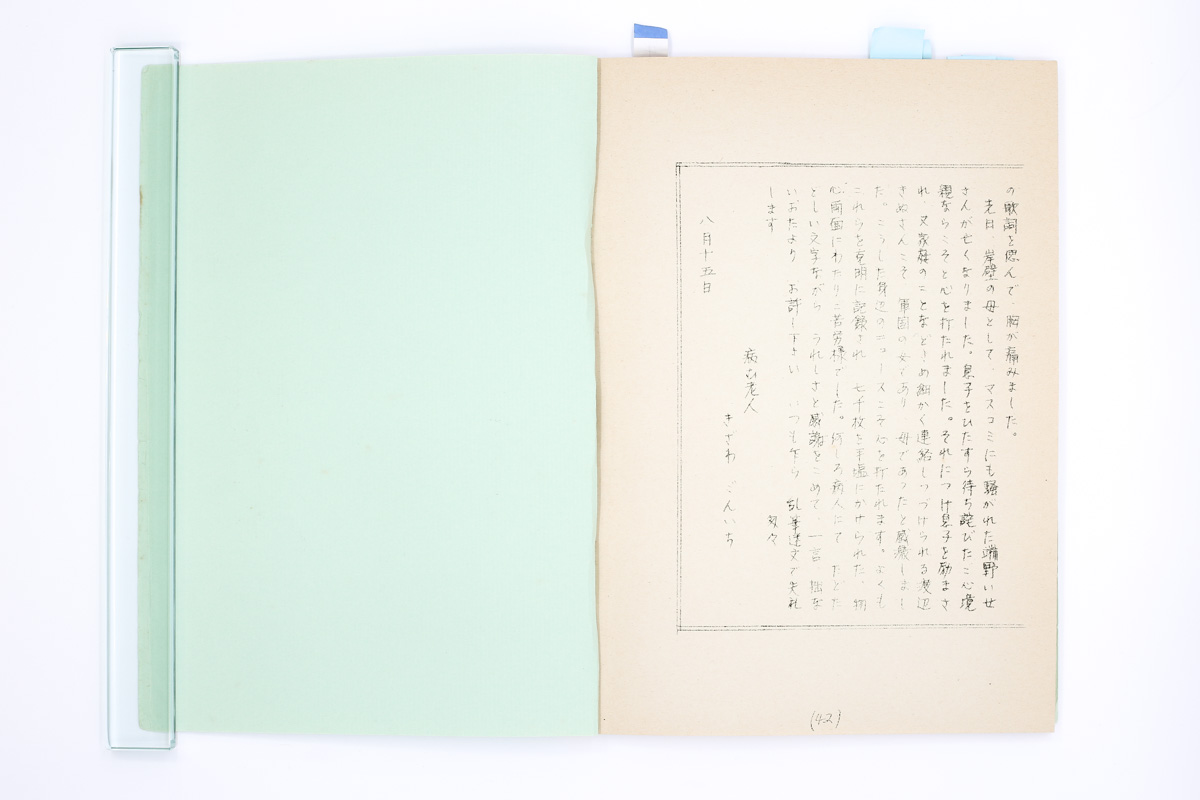 の歌詞を思んで、胸が痛みました。
先日、岸壁の母として、マスコミにも騒がれた端野いせ
さんが亡くなりました。息子をひたすら待ち詫びたご心境
親ならこそと心を打たれました。それにつけ息子を励まさ
れ、又家族のことなどきめ細かく連絡しつづけられる渡辺
きぬさんこそ 軍国の女であり 母であったと感激しまし
た。こうした身辺のニュースこそ心を打たれます。よくも
これらを克明に記録され 七千枚を手塩にかけられた、物
心両面にわたりご苦労様でした。何しろ病人にて たどた
としい文字ながら うれしさと感謝をこめて、一言 拙な
いおたより お許し下さい いつも乍ら 乱筆迷文で失礼
します 敬々
病む老人
きざわ ごんいち
八月十五日
(42)